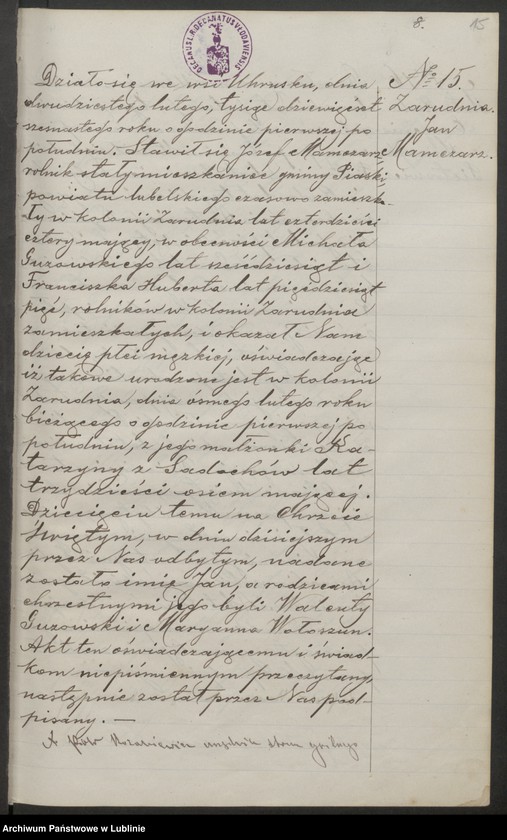 8. 15
DECANUS L.R. DECANATUS VLODAVIENSIS
№ 15.
Zarudnia.
Jan
Mamczarz.
Działo się we wsi Uhrusku, dnia
dwudziestego lutego, tysiąc dziewięćset
szesnastego roku o godzinie pierwszej po
południu. Stawił się Józef Mamczarz
rolnik stały mieszkaniec gminy Piaski
powiatu lubelskiego czasowo zamieszka-
ły w kolonii Zarudnia lat czterdzieści
cztery mający, w obecności Michała
Guzowskiego lat sześćdziesiąt i
Franciszka Huberta lat pięćdziesiąt
pięć, rolników w kolonii Zarudnia
zamieszkałych, i okazał Nam
dziecię płci męzkiej, oświadczając
iż takowe urodzone jest w kolonii
Zarudnia, dnia osmego lutego roku
bieżącego o godzinie pierwszej po
południu, z jego małżonki Ka-
tarzyny z Sadochów lat
trzydzieści osiem mającej.
Dziecięciu temu na Chrzcie
Świętym, w dniu dzisiejszym
przez Nas odbytym, nadane
zostało imię Jan, a rodzicami
chrzestnymi jego byli Walenty
Guzowski i Maryanna Wołoszun.
Akt ten oświadczającemu i świad-
kom niepiśmiennym przeczytany,
następnie został przez Nas pod-
pisany. —
X Piotr
Archiwum Państwowe w Lublinie